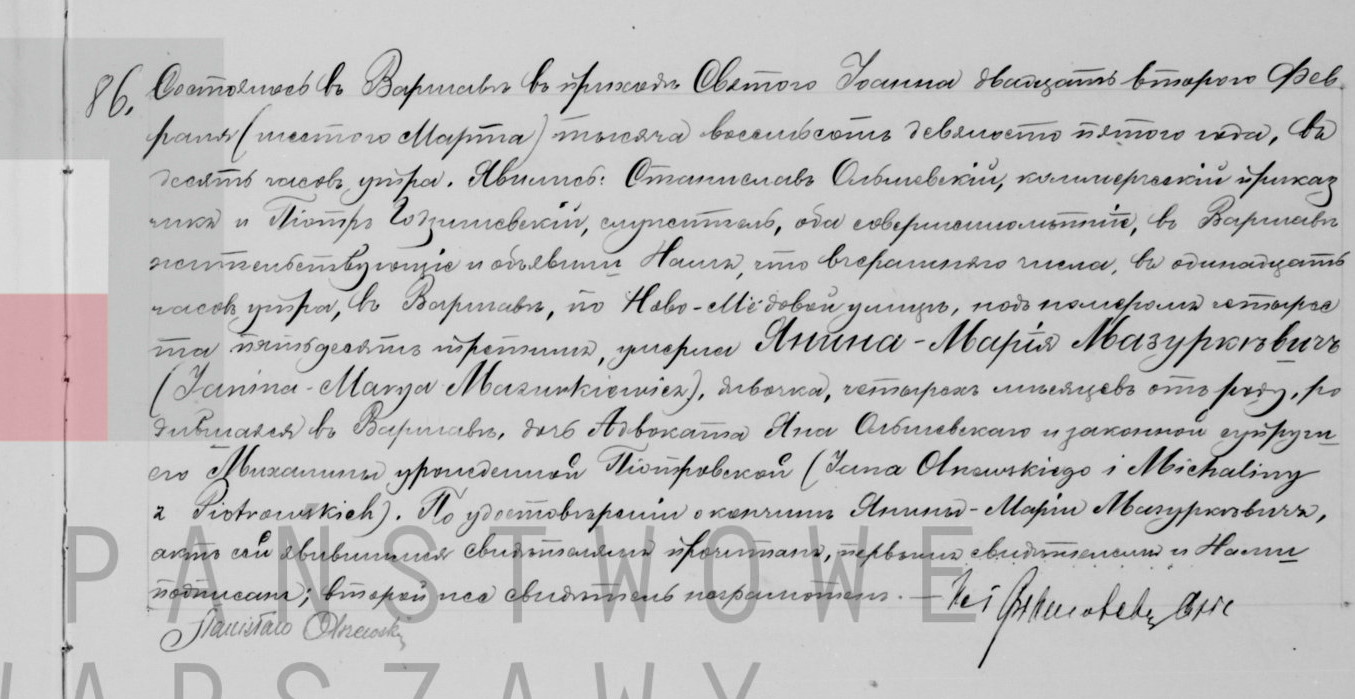 86. Состоялось въ Варшавѣ въ приходѣ Святого Іоанна двадцать второго Фев
раля (шестого Марта) тысяча восемьсотъ девяносто пятого года, въ
десять часовъ утра. Явились: Станиславъ Ольшевскій, коммерческій приказ
чикъ и Піотръ служитель, оба совершеннолѣтніе, въ Варшавѣ
жительствующіе и объявили Намъ, что вчерашняго числа, въ одинадцать
часовъ утра, въ Варшавѣ, по Ново-Мёдовой улицѣ, подъ номеромъ четырес
та пятьдесятъ третимъ, умерла Янина-Марія Мазуркѣвичъ
(Janina-Marya Mazurkiewicz), дѣвочка, четырехъ мѣсяцевъ отъ роду, ро
дившаяся въ Варшавѣ, дочь Адвоката Яна Ольшевскаго и законной супруги
его Михалины урожденной Піотровской (Jana Olszewskiego i Michaliny
z Piotrowskich). По удостовѣреніи о кончинѣ Янины-Маріи Мазуркѣвичъ,
актъ сей явившимся свидѣтелямъ прочитанъ, первымъ свидѣтелемъ и Нами
подписанъ; второй же свидѣтель неграмотенъ. —
Stanisław Olszewski
PAŃSTWOWE
WARSZAWY